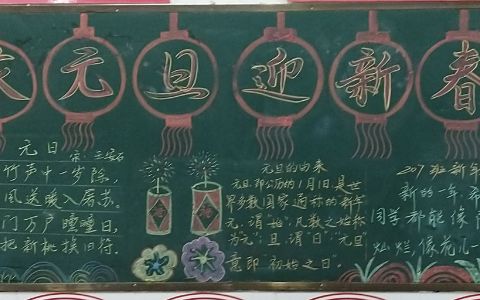 庆元旦迎新春
元日
宋·王安石
竹声中一岁除,
风送暖入屠苏。
门万户曈曈日,
把新桃换旧符.
元旦的由来
元旦,即公历的1月1日,是世
界多数国家通称的"新年"
元,谓"始",凡数之始称
为"元";旦,谓"日";"元旦"
意即"初始之日"。
207班新年
新的一年,希
同学都能像
灿烂,像花儿一